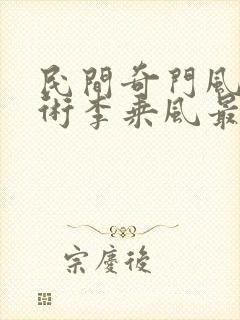 民間奇門風
術李乘風最
宗慶後